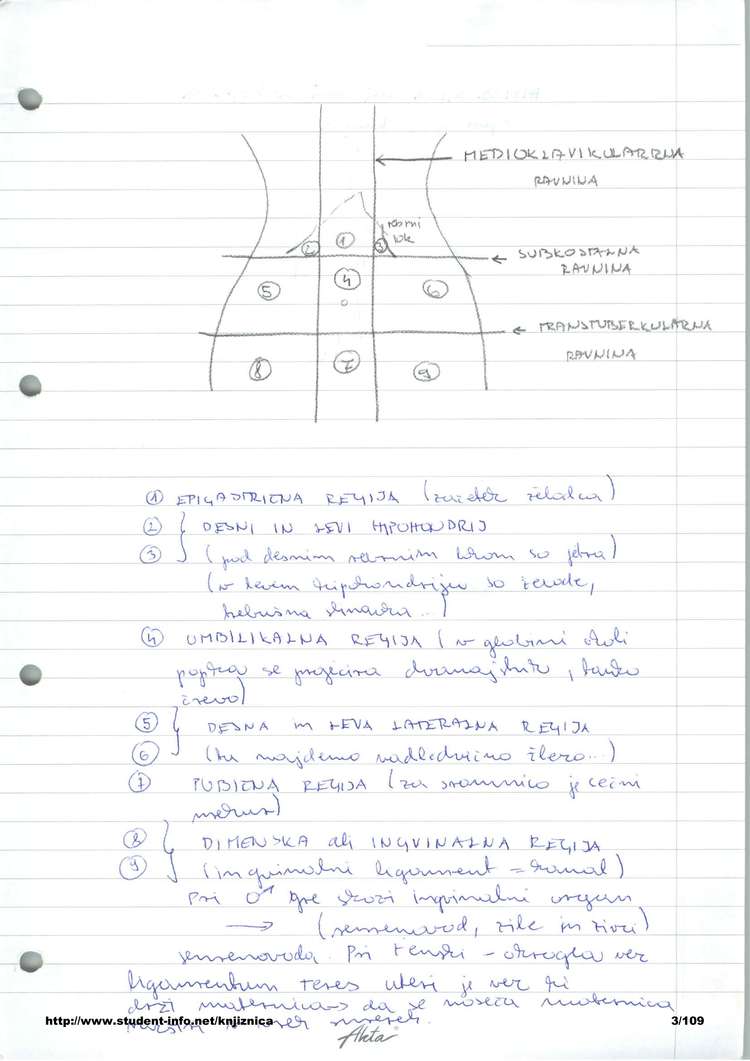 MEDIOKLAVIKULARNA
RAVNINA
rebrni
lok
2
1
3
SUBKOSTALNA
RAVNINA
4
5
6
TRANSTUBERKULARNA
RAVNINA
8
7
9
1 EPIGASTRIČNA REGIJA (začetek želodca)
2 DESNI IN LEVI HIPOHONDRIJ
3 (pod desnim rebrnim lokom so jetra)
(v levem hipohondriju so želodec,
trebušna slinavka..)
4 UMBILIKALNA REGIJA (v globini okoli
popka se projecira dvanajstnik, tanko
črevo)
5 DESNA in LEVA LATERALNA REGIJA
6 (tu najdemo nadledvično žlezo...)
7 PUBIČNA REGIJA (za sramnico je sečni
mehur)
8 DIMELJSKA ali INGVINALNA REGIJA
9 (ingvinalni ligament = kanal)
Pri ♂ gre skozi ingvinalni organ
→ (semenovod, žile in živci)
semenovoda. Pri ženski - okrogla vez
ligamentum teres uteri je vez ki
drži maternico → da se noseča maternica
http://www.student-info.net/knjiznica
3/109
Akta